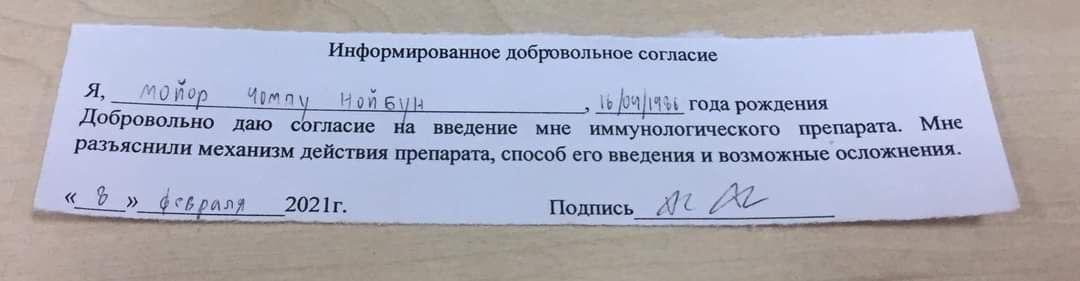 Информированное добровольное согласие
Я, мойор чомпу нойбун, 16/04/1986 года рождения
Добровольно даю согласие на введение мне иммунологического препарата. Мне
разъяснили механизм действия препарата, способ его введения и возможные осложнения.
«8» февраля 2021г. Подпись